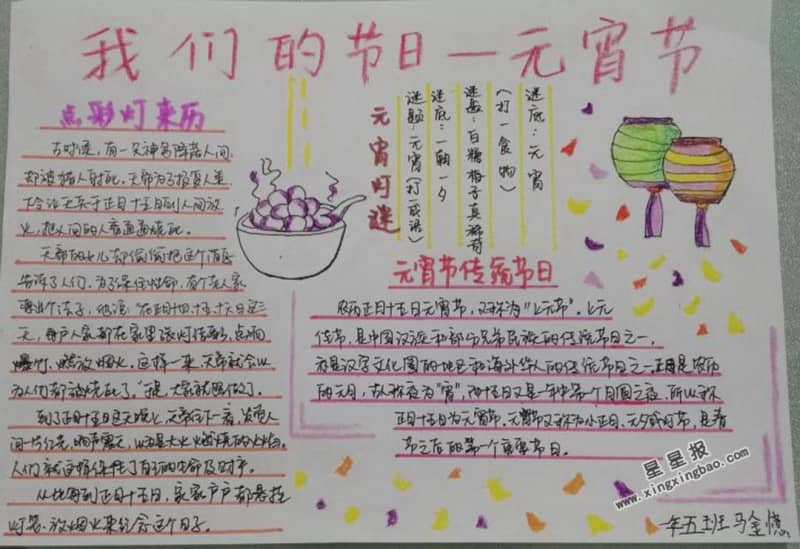 我们的节日—元宵节
点彩灯来历
古时候，有一只神鸟降落人间，
却被猎人射死，天帝为了报复人类，
火，把人间的人畜通通烧死。
天帝的女儿却偷偷把这个消息
告诉了人们，为了保住性命，有个老人家
想出个法子，他说，在正月十四、十五、十六日这三
天，每户人家都在家里张灯结彩、点响
爆竹、燃放烟火，这样一来，天帝就会以
为人们都被烧死了，于是，大家就照做了。
到了正月十五日这天晚上，天帝往下一看，发觉人
间一片红光，响声震天，以为是大火燃烧的火焰。
人们就这样保住了自己的生命及财产。
从此每到正月十五日，家家户户都悬挂
灯笼、放烟火来纪念这个日子。
元宵灯谜
谜题：元宵（打一成语）
谜底：一朝一夕
谜题：白糖梅子真稀奇
（打一食物）
谜底：元宵
元宵节传统节日
农历正月十五日元宵节，又称为“上元节”，上元
佳节，是中国汉族和部分兄弟民族的传统节日之一，
亦是汉字文化圈的地区和海外华人的传统节日之一，正月是农历
的元月，古人称夜为“宵”，而十五日又是一年中第一个月圆之夜，所以称
正月十五日为元宵节。元宵节又称为小正月、元夕或灯节，是春
节之后的第一个重要节日。
星星报
www.xingxingbao.com
一年五班 马金憶